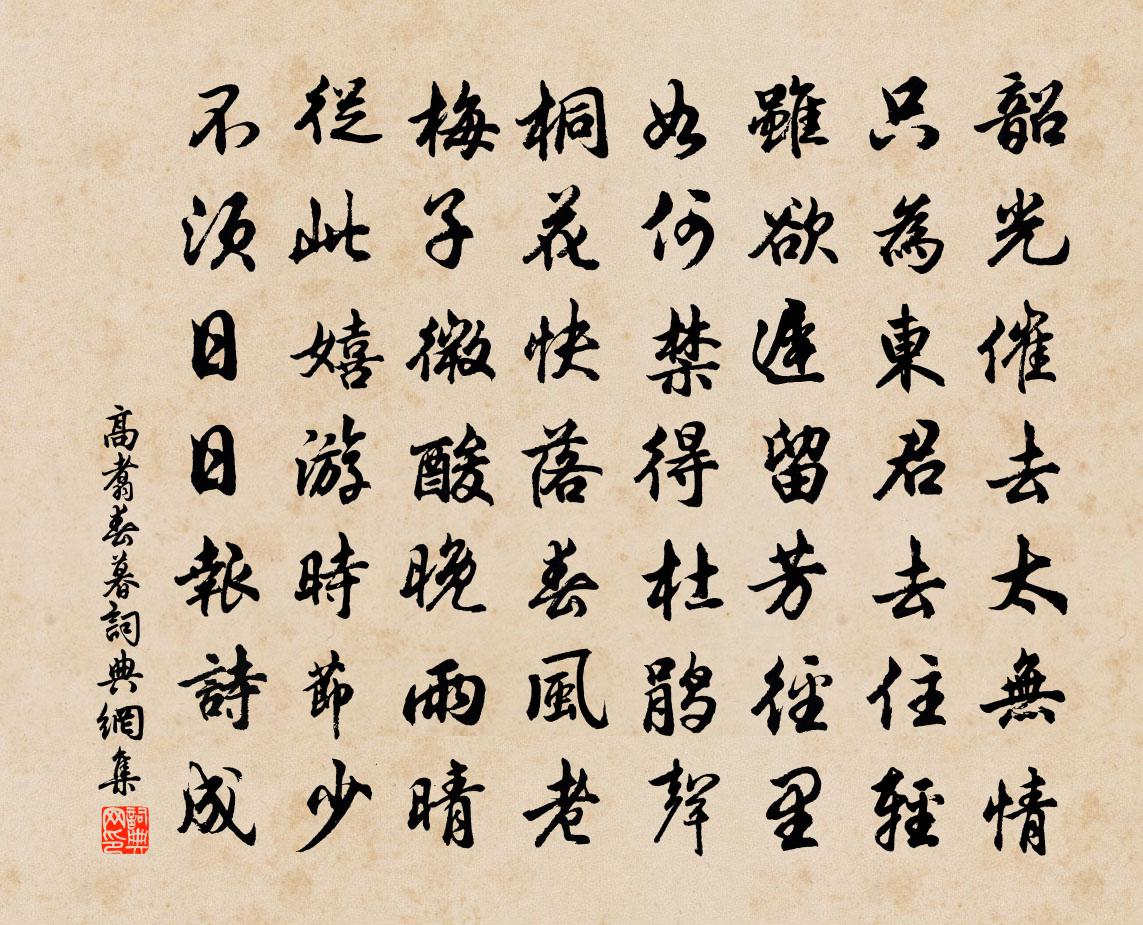 韶光催去太無情
只為東君去住輕
雖欲遲留芳徑里
如何禁得杜鵑聲
桐花快落春風老
梅子微酸晚雨晴
從此嬉游時節少
不須日日報詩成
高翥春暮詞典網集
詞典网印